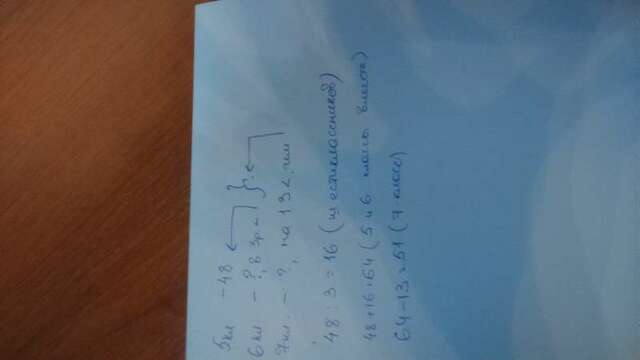 5кл - 48
6 кл. - ?, в 3р. <
7кл. - ?, на 13 <, чем
48 : 3 = 16 (шестиклассников)
48 + 16 = 64 (5 и 6 классы вместе)
64 - 13 = 51 (7 класс)